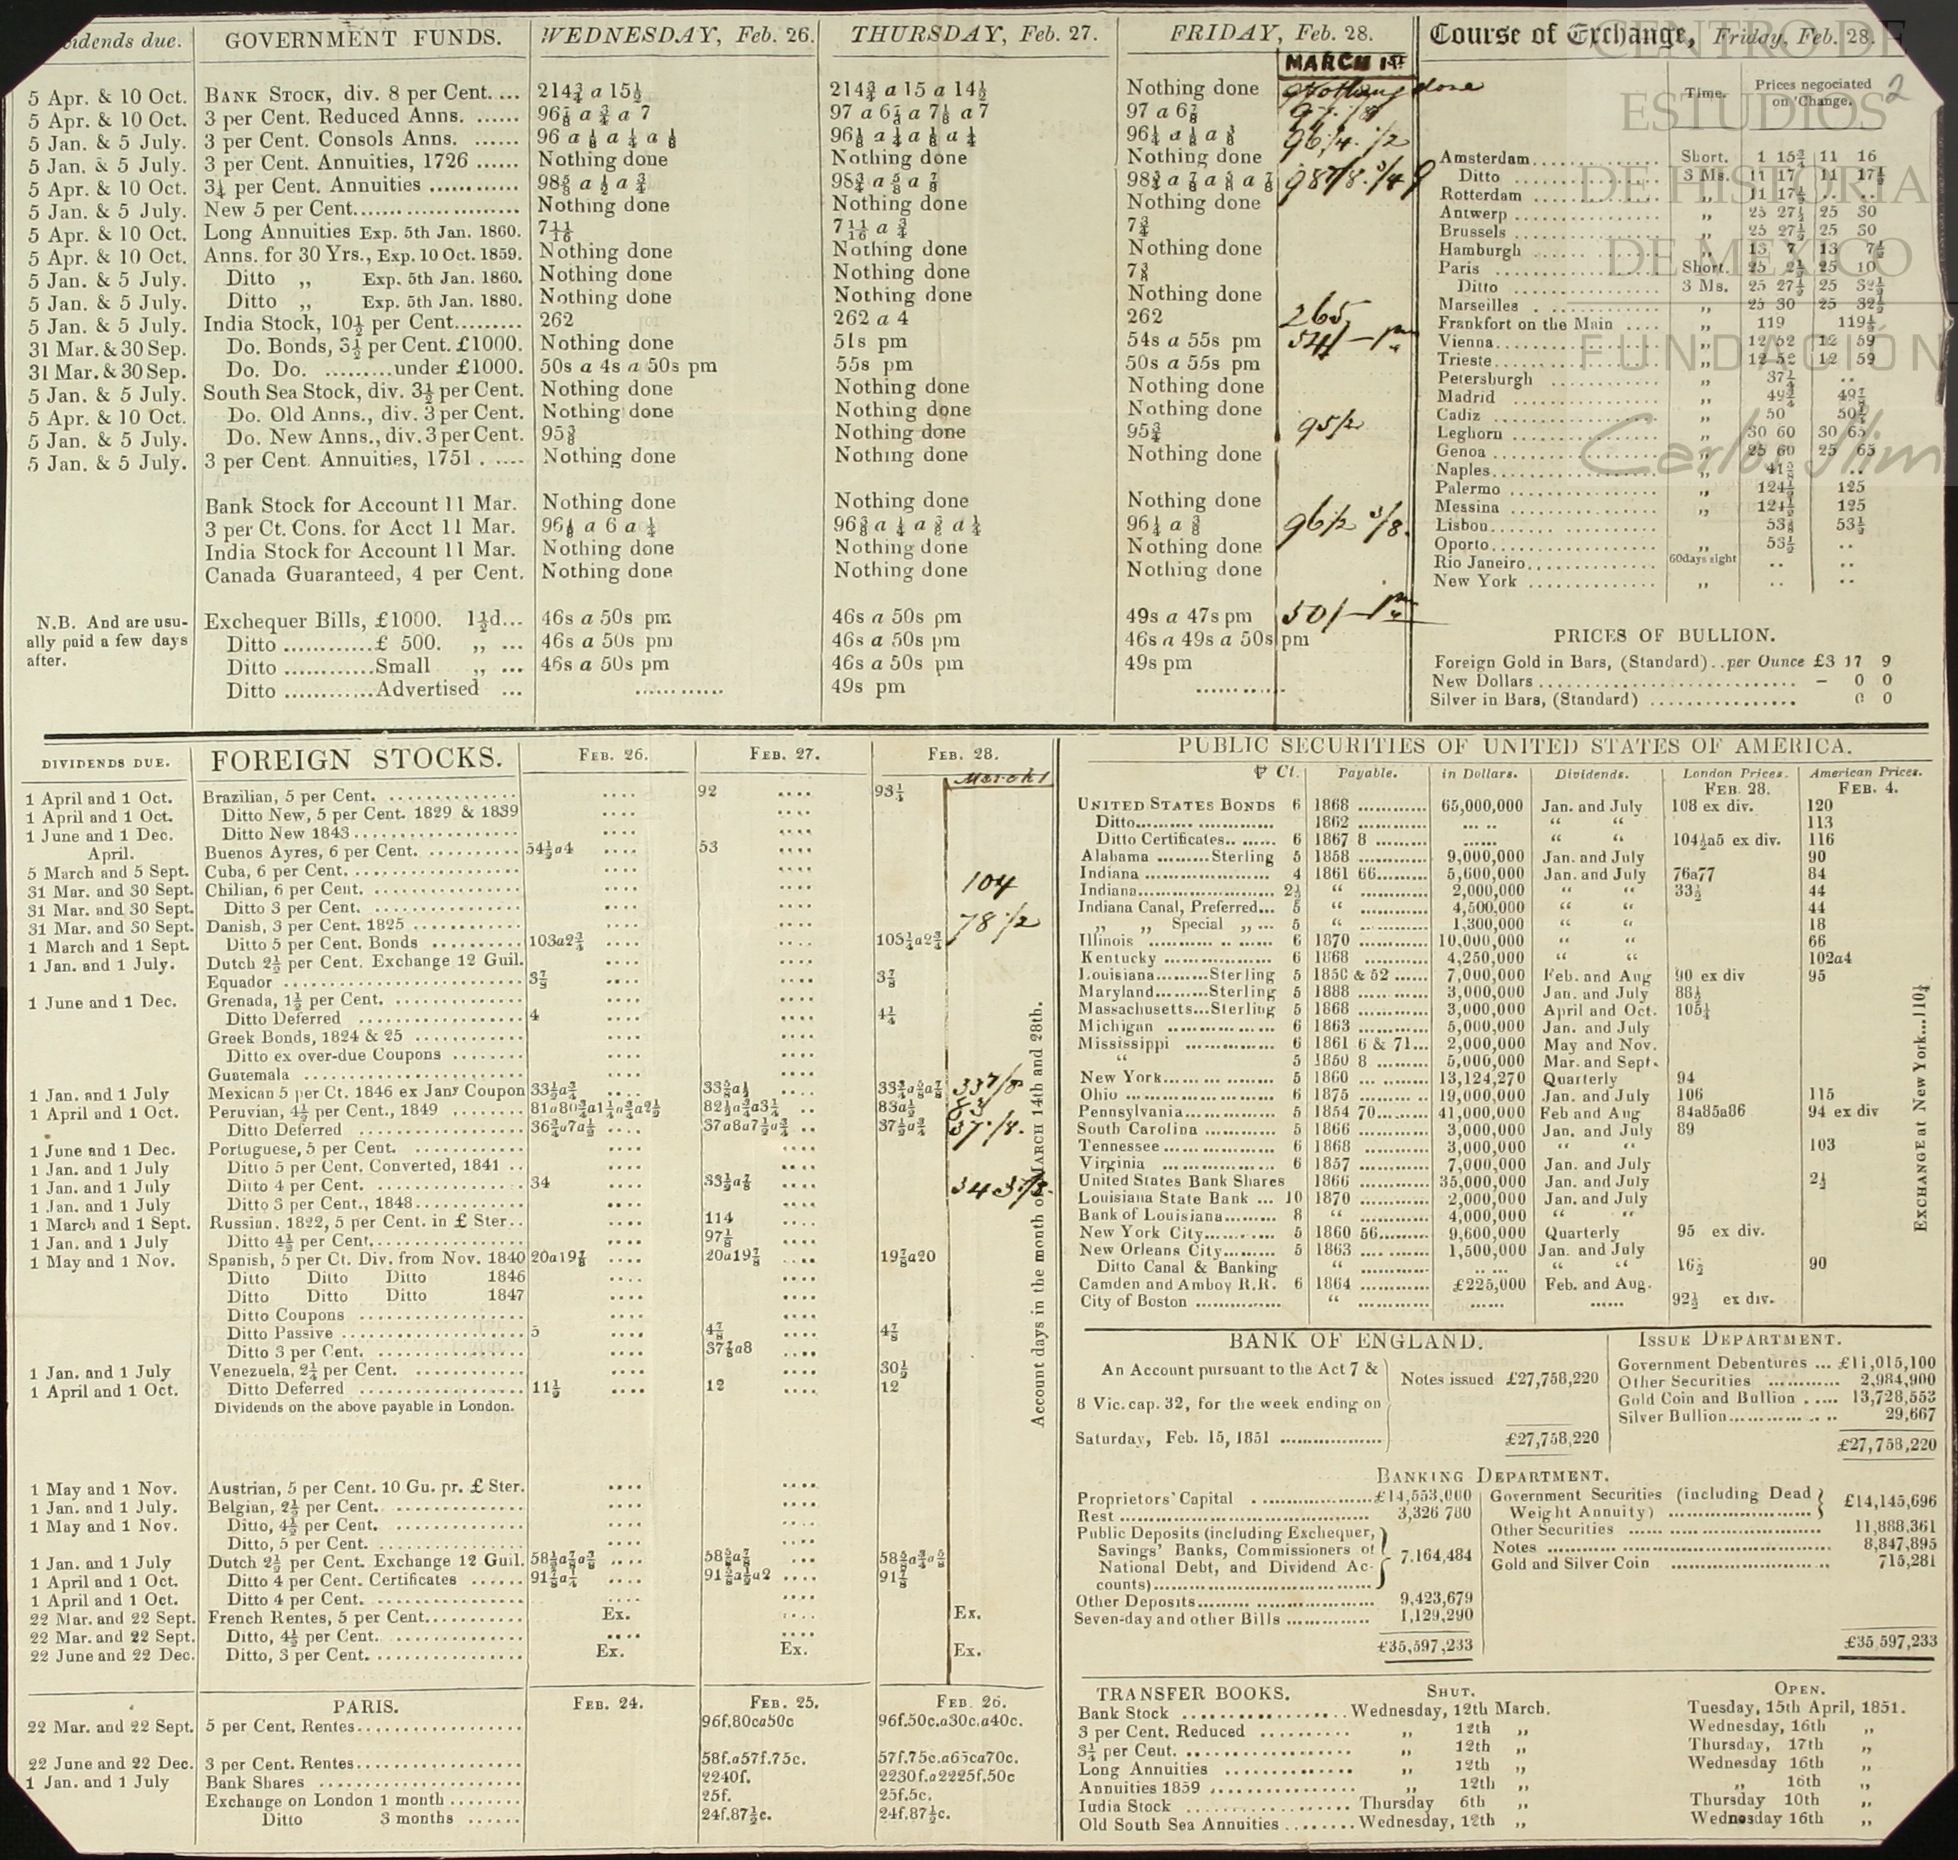 Dividends due. GOVERNMENT FUNDS. WEDNESDAY, Feb. 26. THURSDAY, Feb. 27. FRIDAY, Feb. 28.
MARCH 1ST
5 Apr. & 10 Oct. BANK STOCK, div. 8 per Cent.... 214¾ a 15½ 214¾ a 15 a 14½ Nothing done Nothing done
5 Apr. & 10 Oct. 3 per Cent. Reduced Anns. ...... 96⅞ a ¾ a 7 97 a 6⅞ a 7⅛ a 7 97 a 6⅞
5 Jan. & 5 July. 3 per Cent. Consols Anns. ....... 96 a ⅛ a ¼ a ⅛ 96⅛ a ¼ a ⅛ a ¼ 96¼ a ⅛ a ⅜ 96 1/4 1/2
5 Jan. & 5 July. 3 per Cent. Annuities, 1726 ...... Nothing done Nothing done Nothing done
5 Apr. & 10 Oct. 3¼ per Cent. Annuities ............ 98⅝ a ½ a ¾ 98¾ a ⅝ a ⅞ 98¾ a ⅞ a ⅝ a ⅞ 98 7/8 3/4 9
5 Jan. & 5 July. New 5 per Cent...................... Nothing done Nothing done Nothing done
5 Apr. & 10 Oct. Long Annuities Exp. 5th Jan. 1860. 7 11/16 7 11/16 a ¾ 7¾
5 Apr. & 10 Oct. Anns. for 30 Yrs., Exp. 10 Oct. 1859. Nothing done Nothing done Nothing done
5 Jan. & 5 July. Ditto „ Exp. 5th Jan. 1860. Nothing done Nothing done 7⅜
5 Jan. & 5 July. Ditto „ Exp. 5th Jan. 1880. Nothing done Nothing done Nothing done
5 Jan. & 5 July. India Stock, 10½ per Cent......... 262 262 a 4 262 265
31 Mar. & 30 Sep. Do. Bonds, 3½ per Cent. £1000. Nothing done 51s pm 54s a 55s pm 54/ - pm
31 Mar. & 30 Sep. Do. Do. ..........under £1000. 50s a 4s a 50s pm 55s pm 50s a 55s pm
5 Jan. & 5 July. South Sea Stock, div. 3½ per Cent. Nothing done Nothing done Nothing done
5 Apr. & 10 Oct. Do. Old Anns., div. 3 per Cent. Nothing done Nothing done Nothing done
5 Jan. & 5 July. Do. New Anns., div. 3 per Cent. 95⅜ Nothing done 95¾ 95 1/2
5 Jan. & 5 July. 3 per Cent. Annuities, 1751 . ..... Nothing done Nothing done Nothing done
Bank Stock for Account 11 Mar. Nothing done Nothing done Nothing done
3 per Ct. Cons. for Acct 11 Mar. 96⅛ a 6 a ¼ 96⅜ a ¼ a ⅜ a ¼ 96¼ a ⅜ 96 1/2 3/8.
India Stock for Account 11 Mar. Nothing done Nothing done Nothing done
Canada Guaranteed, 4 per Cent. Nothing done Nothing done Nothing done
N.B. And are usually paid a few days after.
Exchequer Bills, £1000. 1½d... 46s a 50s pm 46s a 50s pm 49s a 47s pm 50/ - pm
Ditto .............£ 500. „ ... 46s a 50s pm 46s a 50s pm 46s a 49s a 50s pm
Ditto ............Small „ ... 46s a 50s pm 46s a 50s pm 49s pm
Ditto ............Advertised ... ............ 49s pm ............
Course of Exchange, Friday, Feb. 28. 2
Time. Prices negotiated on 'Change.
Amsterdam............... Short. 1 15¾ 11 16
Ditto ................. 3 Ms. 11 17 11 17½
Rotterdam ............... „ 11 17½ ..
Antwerp .................. „ 25 27½ 25 30
Brussels ................. „ 25 27½ 25 30
Hamburgh ................ „ 13 7 13 7½
Paris ................... Short. 25 2½ 25 10
Ditto .................. 3 Ms. 25 27½ 25 32½
Marseilles ............... „ 25 30 25 32½
Frankfort on the Main .... „ 119 119½
Vienna................... „ 12 52 12 59
Trieste.................. „ 12 52 12 59
Petersburgh ............. „ 37¼ ..
Madrid .................. „ 49¾ 49⅞
Cadiz ................... „ 50 50¼
Leghorn ................. „ 30 60 30 65
Genoa ................... „ 25 60 25 65
Naples................... „ 41⅝ ..
Palermo ................. „ 124½ 125
Messina ................. „ 124½ 125
Lisbon................... 53⅜ 53½
Oporto................... „ 53½ ..
Rio Janeiro.............. 60days sight .. ..
New York ................ „ .. ..
PRICES OF BULLION.
Foreign Gold in Bars, (Standard)..per Ounce £3 17 9
New Dollars ............................ – 0 0
Silver in Bars, (Standard) ................ 0 0
DIVIDENDS DUE. FOREIGN STOCKS. FEB. 26. FEB. 27. FEB. 28. March 1
1 April and 1 Oct. Brazilian, 5 per Cent. .............. .... 92 .... 93¼
1 April and 1 Oct. Ditto New, 5 per Cent. 1829 & 1839 .... ....
1 June and 1 Dec. Ditto New 1843.................. .... ....
April. Buenos Ayres, 6 per Cent. .......... 54½a4 .... 53 ....
5 March and 5 Sept. Cuba, 6 per Cent. .................. .... ....
31 Mar. and 30 Sept. Chilian, 6 per Cent. ............... .... .... 104
31 Mar. and 30 Sept. Ditto 3 per Cent. ............... .... ....
31 Mar. and 30 Sept. Danish, 3 per Cent. 1825 ............ .... .... 78 1/2
1 March and 1 Sept. Ditto 5 per Cent. Bonds .......... 103a2¾ .... .... 105¼a2¾
1 Jan. and 1 July. Dutch 2½ per Cent. Exchange 12 Guil. .... ....
Equador ........................ 3⅞ .... .... 3⅞
1 June and 1 Dec. Grenada, 1½ per Cent. .............. .... ....
Ditto Deferred .................. 4 .... .... 4¼
Greek Bonds, 1824 & 25 ............ .... ....
Ditto ex over-due Coupons ........ .... ....
Guatemala ........................ .... ....
1 Jan. and 1 July Mexican 5 per Ct. 1846 ex Jany Coupon 33½a¾ .... 33⅝a½ .... 33¾a⅝a⅞ 33 7/8
1 April and 1 Oct. Peruvian, 4½ per Cent., 1849 ........ 81a80¾a1¼a¾a2½ 82½a¾a3¼ .. 83a½
Ditto Deferred .................. 36¾a7a½ .... 37a8a7½a¾ .. 37½a¾
1 June and 1 Dec. Portuguese, 5 per Cent. ............ .... ....
1 Jan. and 1 July Ditto 5 per Cent. Converted, 1841 .. .... ....
1 Jan. and 1 July Ditto 4 per Cent. ................ 34 .... 33½a⅞ ....
1 Jan. and 1 July Ditto 3 per Cent., 1848............ .... ....
1 March and 1 Sept. Russian, 1822, 5 per Cent. in £ Ster.. .... 114 ....
1 Jan. and 1 July Ditto 4½ per Cent................. .... 97⅛ ....
1 May and 1 Nov. Spanish, 5 per Ct. Div. from Nov. 1840 20a19⅞ .... 20a19⅞ .... 19⅞a20
Ditto Ditto Ditto 1846 .... ....
Ditto Ditto Ditto 1847 .... ....
Ditto Coupons .................. .... ....
Ditto Passive .................... 5 .... 4⅞ .... 4⅞
Ditto 3 per Cent. ................ .... 37⅞a8 ....
1 Jan. and 1 July Venezuela, 2¼ per Cent. ............ .... .... 30½
1 April and 1 Oct. Ditto Deferred .................. 11½ .... 12 .... 12
Dividends on the above payable in London.
Account days in the month of MARCH 14th and 28th.
1 May and 1 Nov. Austrian, 5 per Cent. 10 Gu. pr. £ Ster. .... ....
1 Jan. and 1 July. Belgian, 2½ per Cent. .............. .... ....
1 May and 1 Nov. Ditto, 4½ per Cent. .............. .... ....
Ditto, 5 per Cent. ................ .... ....
1 Jan. and 1 July Dutch 2½ per Cent. Exchange 12 Guil. 58½a⅞a⅜ .... 58⅝a⅞ ... 58⅝a¾a⅝
1 April and 1 Oct. Ditto 4 per Cent. Certificates ...... 91⅞a¼ .... 91⅝a½a2 .... 91⅞
1 April and 1 Oct. Ditto 4 per Cent. ................ .... ....
22 Mar. and 22 Sept. French Rentes, 5 per Cent........... Ex. .... Ex.
22 Mar. and 22 Sept. Ditto, 4½ per Cent. .............. .... ....
22 June and 22 Dec. Ditto, 3 per Cent. ................ Ex. Ex. Ex.
PARIS. FEB. 24. FEB. 25. FEB. 26.
22 Mar. and 22 Sept. 5 per Cent. Rentes.................. 96f.80ca50c 96f.50c.a30c.a40c.
22 June and 22 Dec. 3 per Cent. Rentes.................. 58f.a57f.75c. 57f.75c.a65ca70c.
1 Jan. and 1 July Bank Shares ...................... 2240f. 2230f.a2225f.50c
Exchange on London 1 month ........ 25f. 25f.5c.
Ditto 3 months ...... 24f.87½c. 24f.87½c.
PUBLIC SECURITIES OF UNITED STATES OF AMERICA.
₱ Ct. Payable. in Dollars. Dividends. London Prices. FEB. 28. American Prices. FEB. 4.
UNITED STATES BONDS 6 1868 ............ 65,000,000 Jan. and July 108 ex div. 120
Ditto......... ............. 1862 ............ ... .. “ “ 113
Ditto Certificates.. ...... 6 1867 8 ........... ...... “ “ 104½a5 ex div. 116
Alabama .........Sterling 5 1858 ............ 9,000,000 Jan. and July 90
Indiana ..................... 4 1861 66.......... 5,600,000 Jan. and July 76a77 84
Indiana...................... 2½ “ ............ 2,000,000 “ “ 33½ 44
Indiana Canal, Preferred... 5 “ ............ 4,500,000 “ “ 44
„ „ Special „ ... 5 “ ............ 1,300,000 “ “ 18
Illinois .................... 6 1870 ............ 10,000,000 “ “ 66
Kentucky .................... 6 1868 ............ 4,250,000 “ “ 102a4
Louisiana.........Sterling 5 1850 & 52 ...... 7,000,000 Feb. and Aug 90 ex div 95
Maryland.........Sterling 5 1888 ............ 3,000,000 Jan. and July 88½
Massachusetts...Sterling 5 1868 ............ 3,000,000 April and Oct. 105¼
Michigan .................... 6 1863 ............ 5,000,000 Jan. and July
Mississippi ................. 6 1861 6 & 71... 2,000,000 May and Nov.
“ 5 1850 8 ........ 5,000,000 Mar. and Sept.
New York................... 5 1860 ........... 13,124,270 Quarterly 94
Ohio ........................ 6 1875 ............ 19,000,000 Jan. and July 106 115
Pennsylvania................ 5 1854 70.......... 41,000,000 Feb and Aug 84a85a86 94 ex div
South Carolina ............. 5 1866 ............ 3,000,000 Jan. and July 89
Tennessee................... 6 1868 ............ 3,000,000 “ “ 103
Virginia ................... 6 1857 ............ 7,000,000 Jan. and July
United States Bank Shares 1866 ............ 35,000,000 Jan. and July 2½
Louisiana State Bank ... 10 1870 ............ 2,000,000 Jan. and July
Bank of Louisiana.......... 8 “ ............ 4,000,000 “ “
New York City.............. 5 1860 56.......... 9,600,000 Quarterly 95 ex div.
New Orleans City......... 5 1863 ........... 1,500,000 Jan. and July
Ditto Canal & Banking “ ............ ...... “ “ 16½ 90
Camden and Amboy R.R. 6 1864 ............ £225,000 Feb. and Aug.
City of Boston ............... “ ............ ...... ...... 92½ ex div.
EXCHANGE at New York...110¼
BANK OF ENGLAND.
An Account pursuant to the Act 7 &
8 Vic. cap. 32, for the week ending on
Saturday, Feb. 15, 1851 ..................
Notes issued £27,758,220
£27,758,220
ISSUE DEPARTMENT.
Government Debentures ... £11,015,100
Other Securities ............ 2,984,900
Gold Coin and Bullion ...... 13,728,553
Silver Bullion................ 29,667
£27,758,220
BANKING DEPARTMENT.
Proprietors' Capital ......................£14,553,000
Rest ........................................ 3,326 780
Public Deposits (including Exchequer,
Savings' Banks, Commissioners of
National Debt, and Dividend Ac-
counts)................................ 7,164,484
Other Deposits............................ 9,423,679
Seven-day and other Bills .............. 1,129,290
£35,597,233
Government Securities (including Dead
Weight Annuity) ........................ £14,145,696
Other Securities ............................ 11,888,361
Notes ........................................ 8,847,895
Gold and Silver Coin ........................ 715,281
£35,597,233
TRANSFER BOOKS. SHUT. OPEN.
Bank Stock ..................Wednesday, 12th March. Tuesday, 15th April, 1851.
3 per Cent. Reduced .......... „ 12th „ Wednesday, 16th „
3¼ per Cent. .................. „ 12th „ Thursday, 17th „
Long Annuities .............. „ 12th „ Wednesday 16th „
Annuities 1859 ................ „ 12th „ „ 16th „
India Stock .................. Thursday 6th „ Thursday 10th „
Old South Sea Annuities ........Wednesday, 12th „ Wednesday 16th „
CENTRO DE
ESTUDIOS
DE HISTORIA
DE MÉXICO
FUNDACIÓN
Carlos Slim